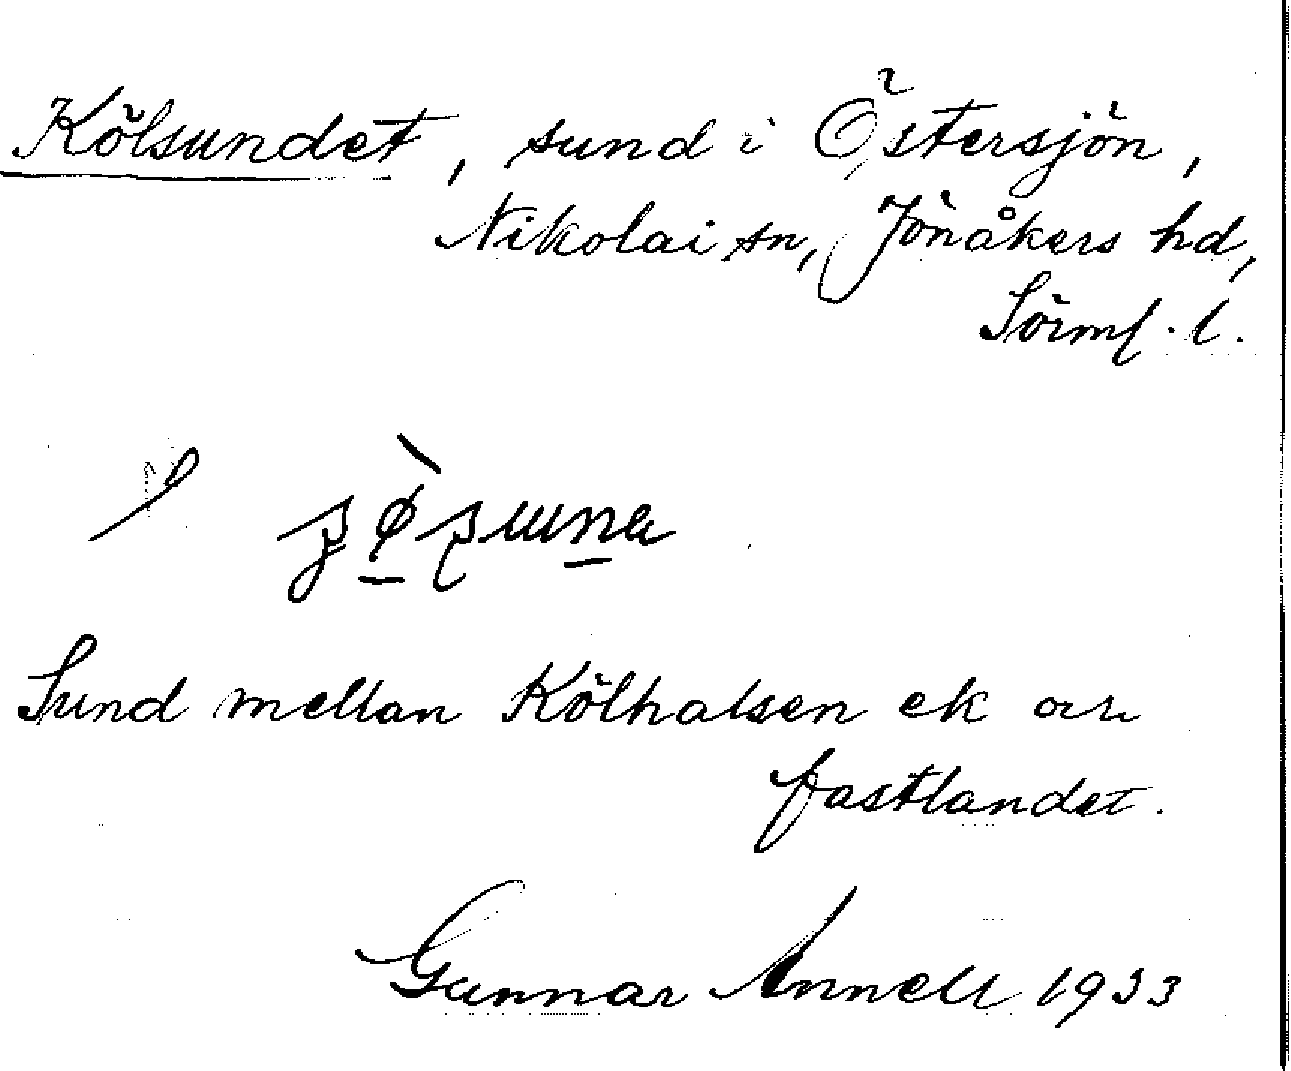 Kölsundet, sund i Östersjön,
Nikolai sn, Jönåkers hd,
Sörml. l.
Sund mellan Kölhalsen ek och
fastlandet.
Gunnar Annell 1933